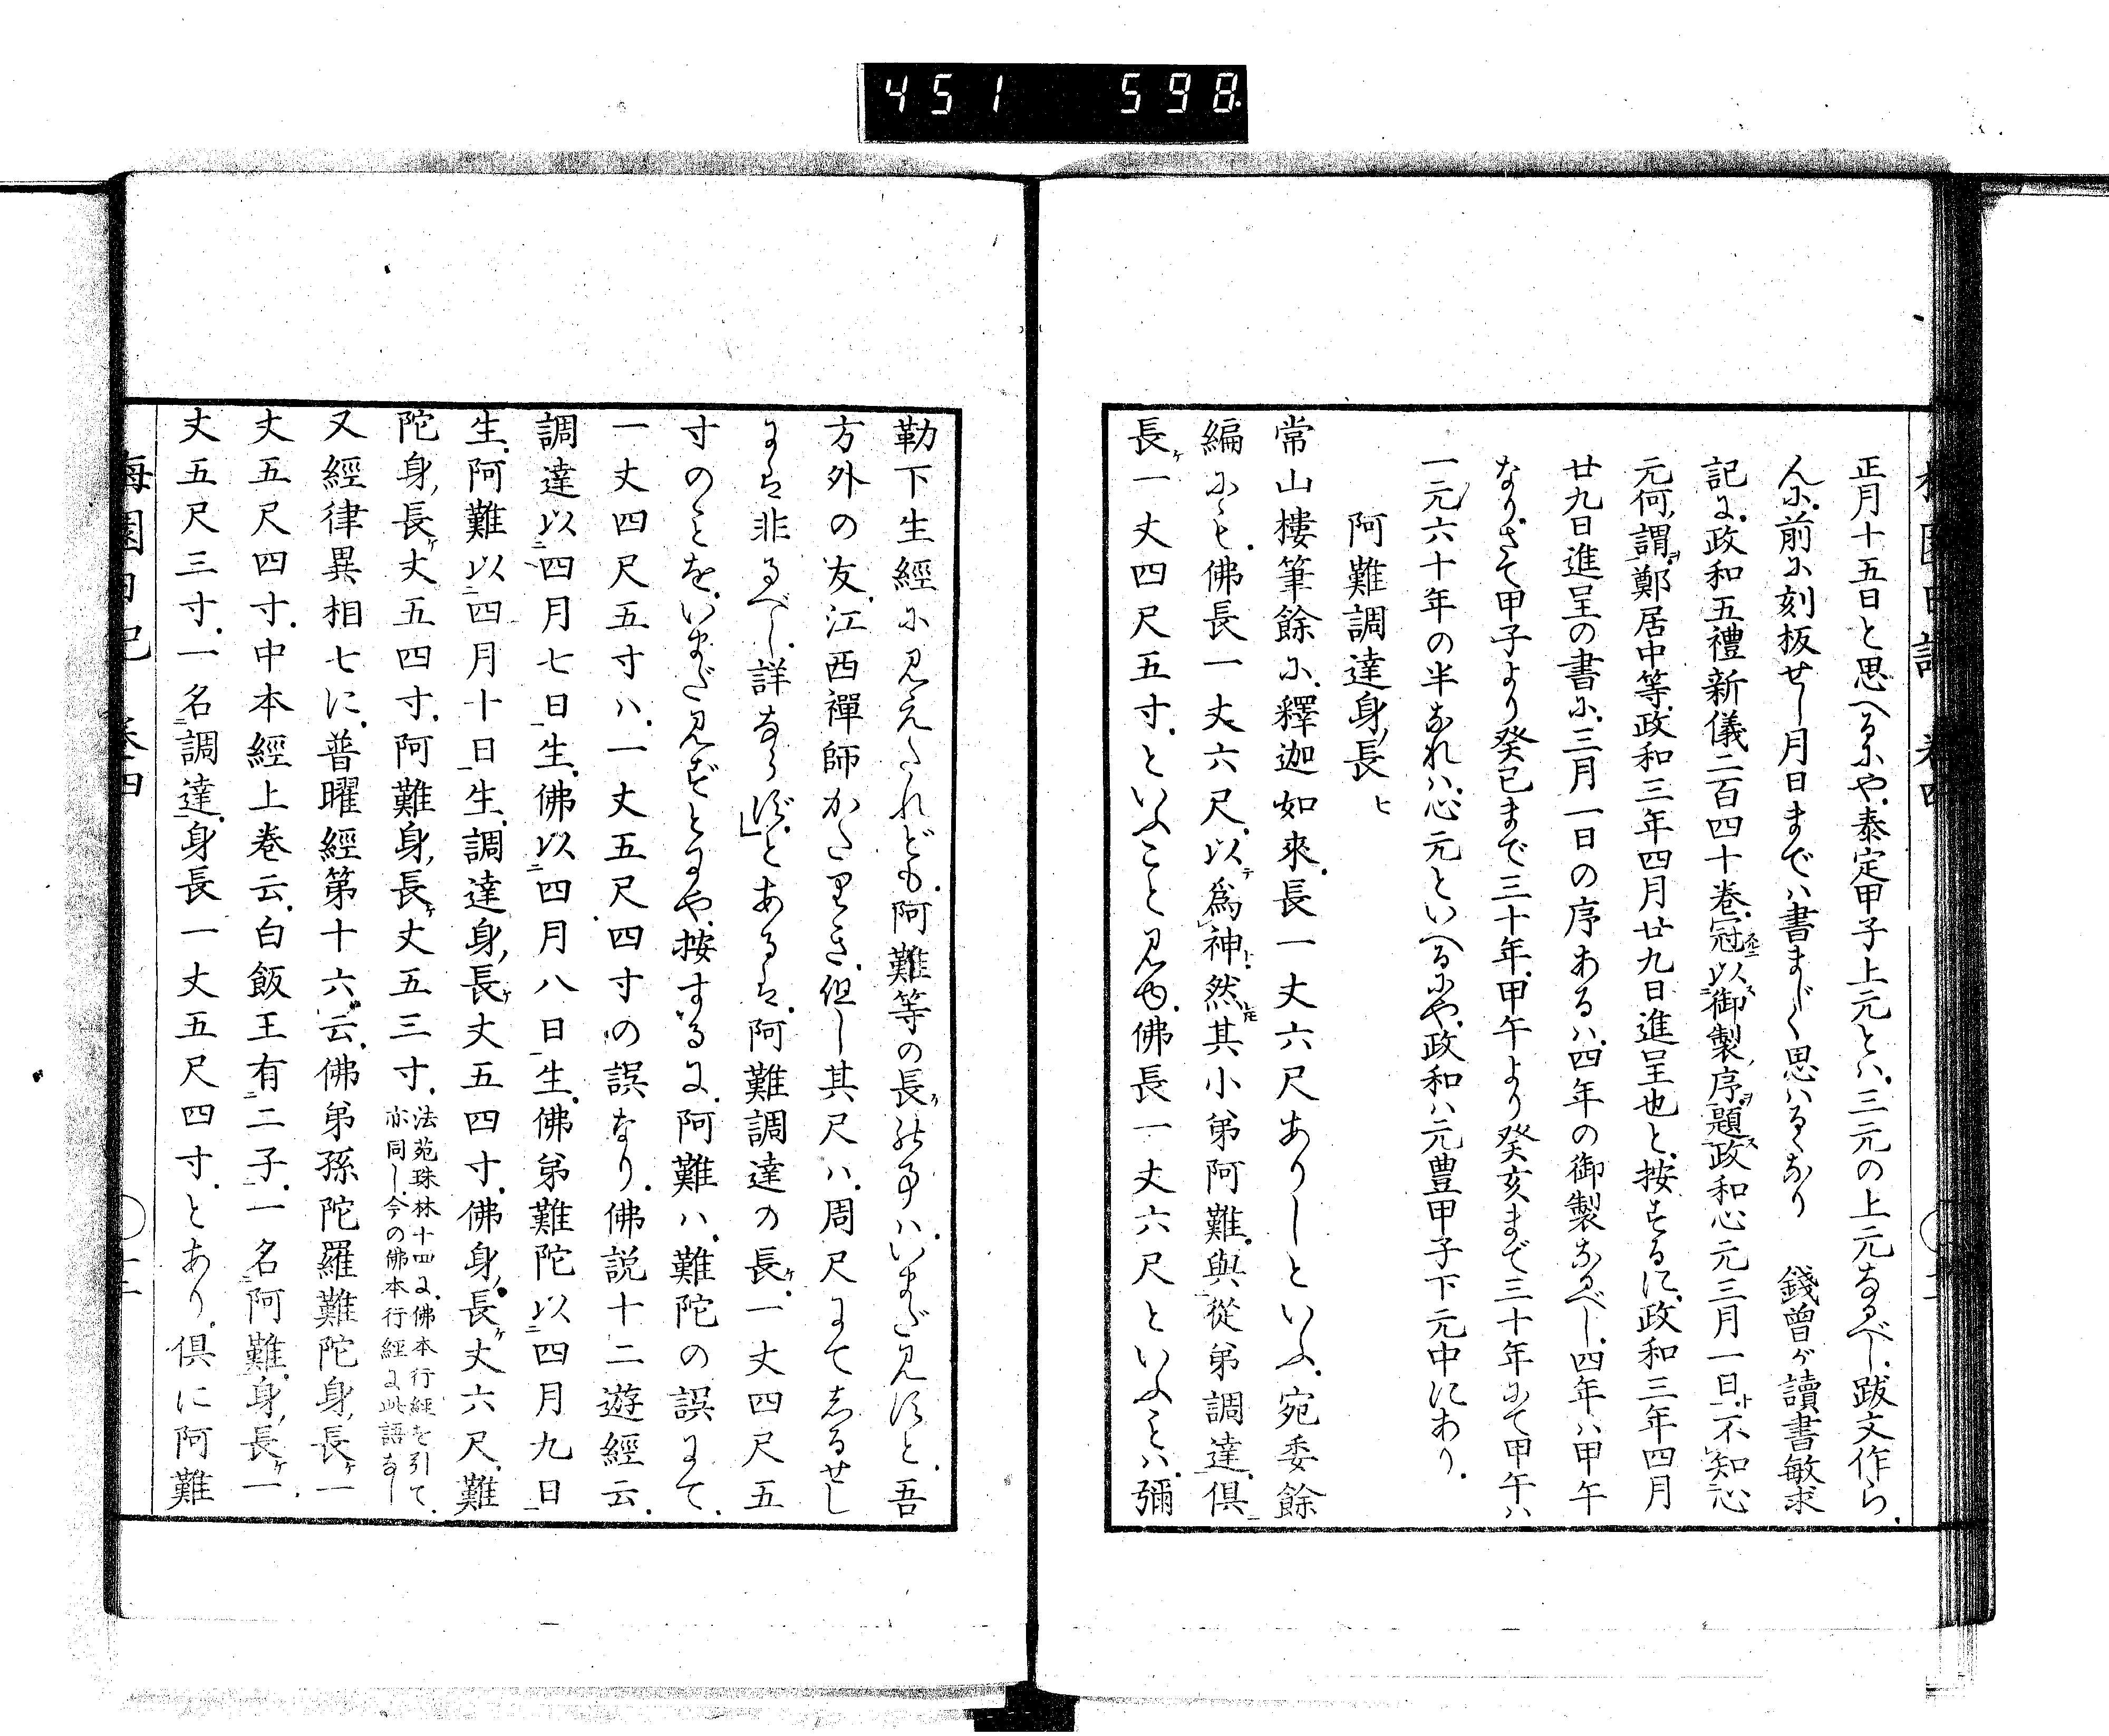 451 598
正月十五日と思へるにや、泰定甲子上元とハ、三元の上元なるべし、跋文作ら
んに、前に刻板せし月日までハ書まじく思ハるゝなり 錢曾ガ讀書敏求
記に、政和五禮新儀二百四十卷、冠以御製序、題政和心元三月一日、不知心
元何謂、鄭居中等、政和三年四月廿九日進呈也と、按ずるに、政和三年四月
廿九日進呈の書に、三月一日の序あるハ、四年の御製なるべし、四年ハ甲午
なり、さて甲子より癸巳まで三十年、甲午より癸亥まで三十年にて甲午ハ
一元六十年の半なれハ、心元といへるにや、政和ハ元豊甲子下元中にあり、
阿難調達身長ヒ
常山樓筆餘に、釋迦如來、長一丈六尺ありしといふ、宛委餘
編にも、佛長一丈六尺、以爲神、然其小弟阿難、與從弟調達、倶
長ケ一丈四尺五寸、といふこと見ゆ、佛長一丈六尺といふことハ、彌
勒下生經に見えたれども、阿難等の長ケの事ハ、いまだ見ずと、吾
方外の友、江西禪師かたりき、但し其尺ハ、周尺にてしるせし
には非るべし、詳ならず、とあるは、阿難調達の長ケ、一丈四尺五
寸のことを、いまだ見ずとにや、按するに、阿難ハ、難陀の誤にて、
一丈四尺五寸ハ、一丈五尺四寸の誤なり、佛説十二遊經云、
調達以四月七日生、佛以四月八日生、佛弟難陀以四月九日
生、阿難以四月十日生、調達身長ケ丈五四寸、佛身長ケ丈六尺、難
陀身長ケ丈五四寸、阿難身長ケ丈五三寸、法苑珠林十四に、佛本行經を引て、
亦同し、今の佛本行經に此語なし
又經律異相七に、普曜經第十六云、佛弟孫陀羅難陀身長ケ一
丈五尺四寸、中本經上卷云、白飯王有二子、一名阿難、身長ケ一
丈五尺三寸、一名調達、身長一丈五尺四寸、とあり、倶に阿難
梅園日記 卷四